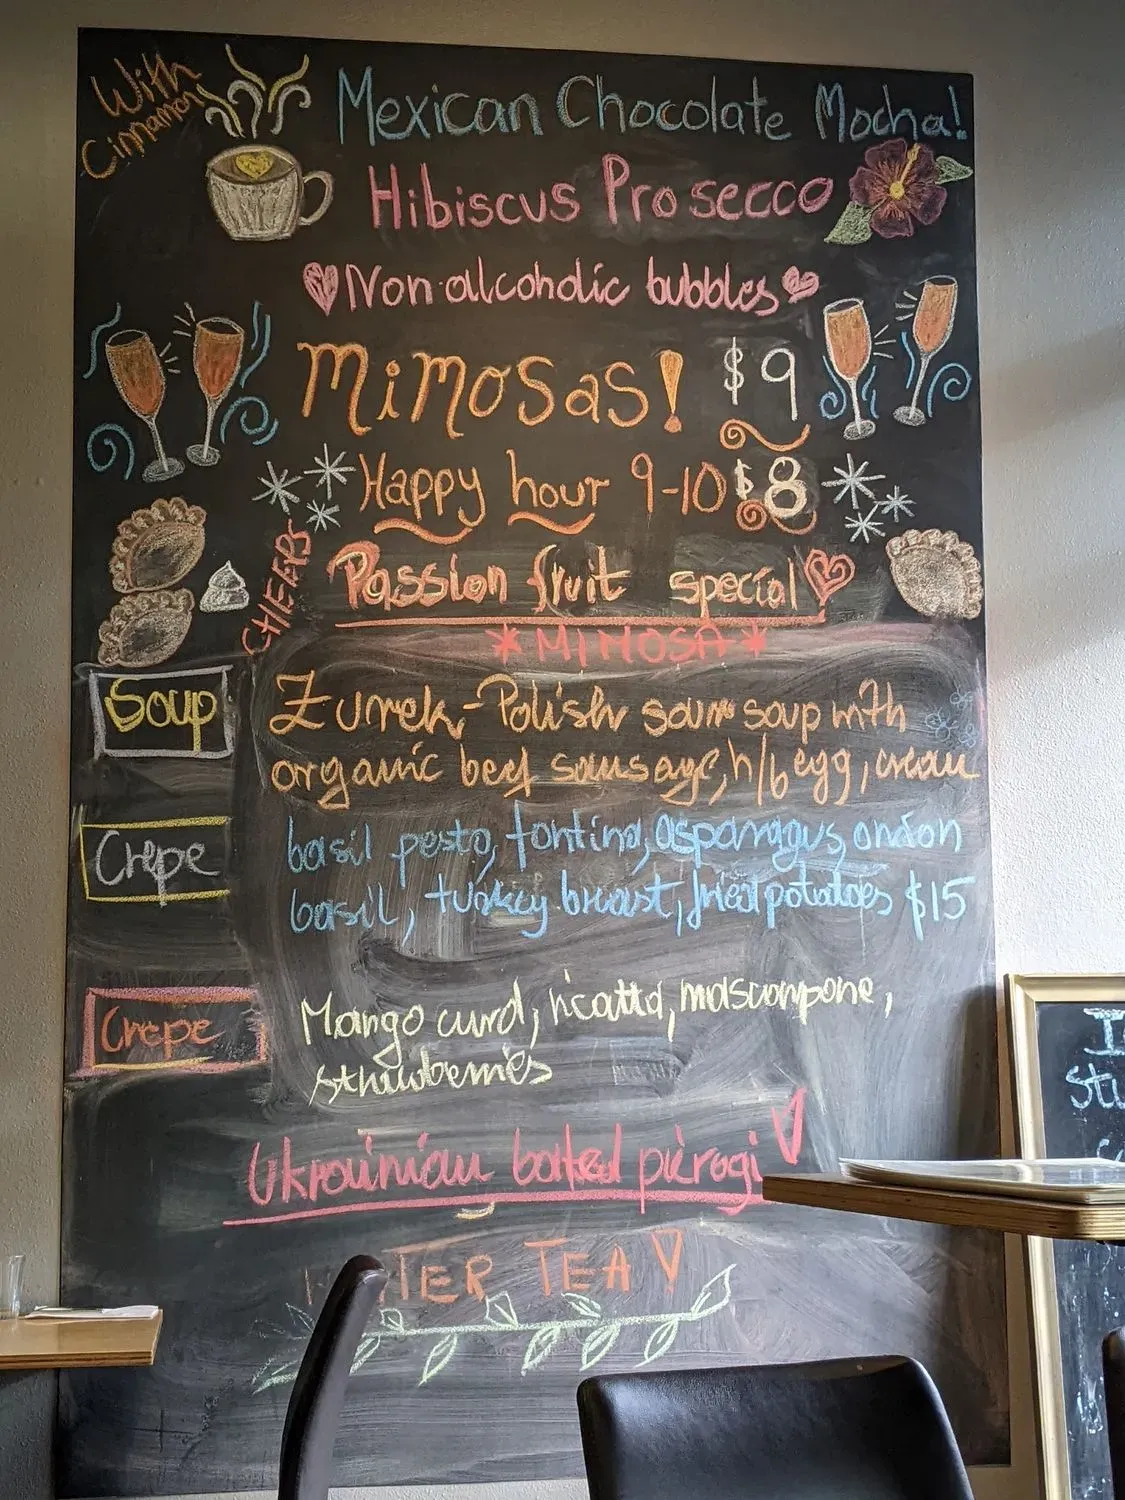 With
Cinnamon
Mexican Chocolate Mocha!
Hibiscus Prosecco
Non-alcoholic bubbles
Mimosas! $9
Happy hour 9-10 $8
CHEERS
Passion fruit special
*MIMOSA*
Soup
Zurek-Polish sour soup with
organic beef sausage, h/b egg, cream
Crepe
basil pesto, fontina, asparagus, onion
basil, turkey breast, fried potatoes $15
Crepe
Mango curd, ricotta, mascorpone,
strawberries
Ukrainian baked pierogi
TER TEA
I
Stu